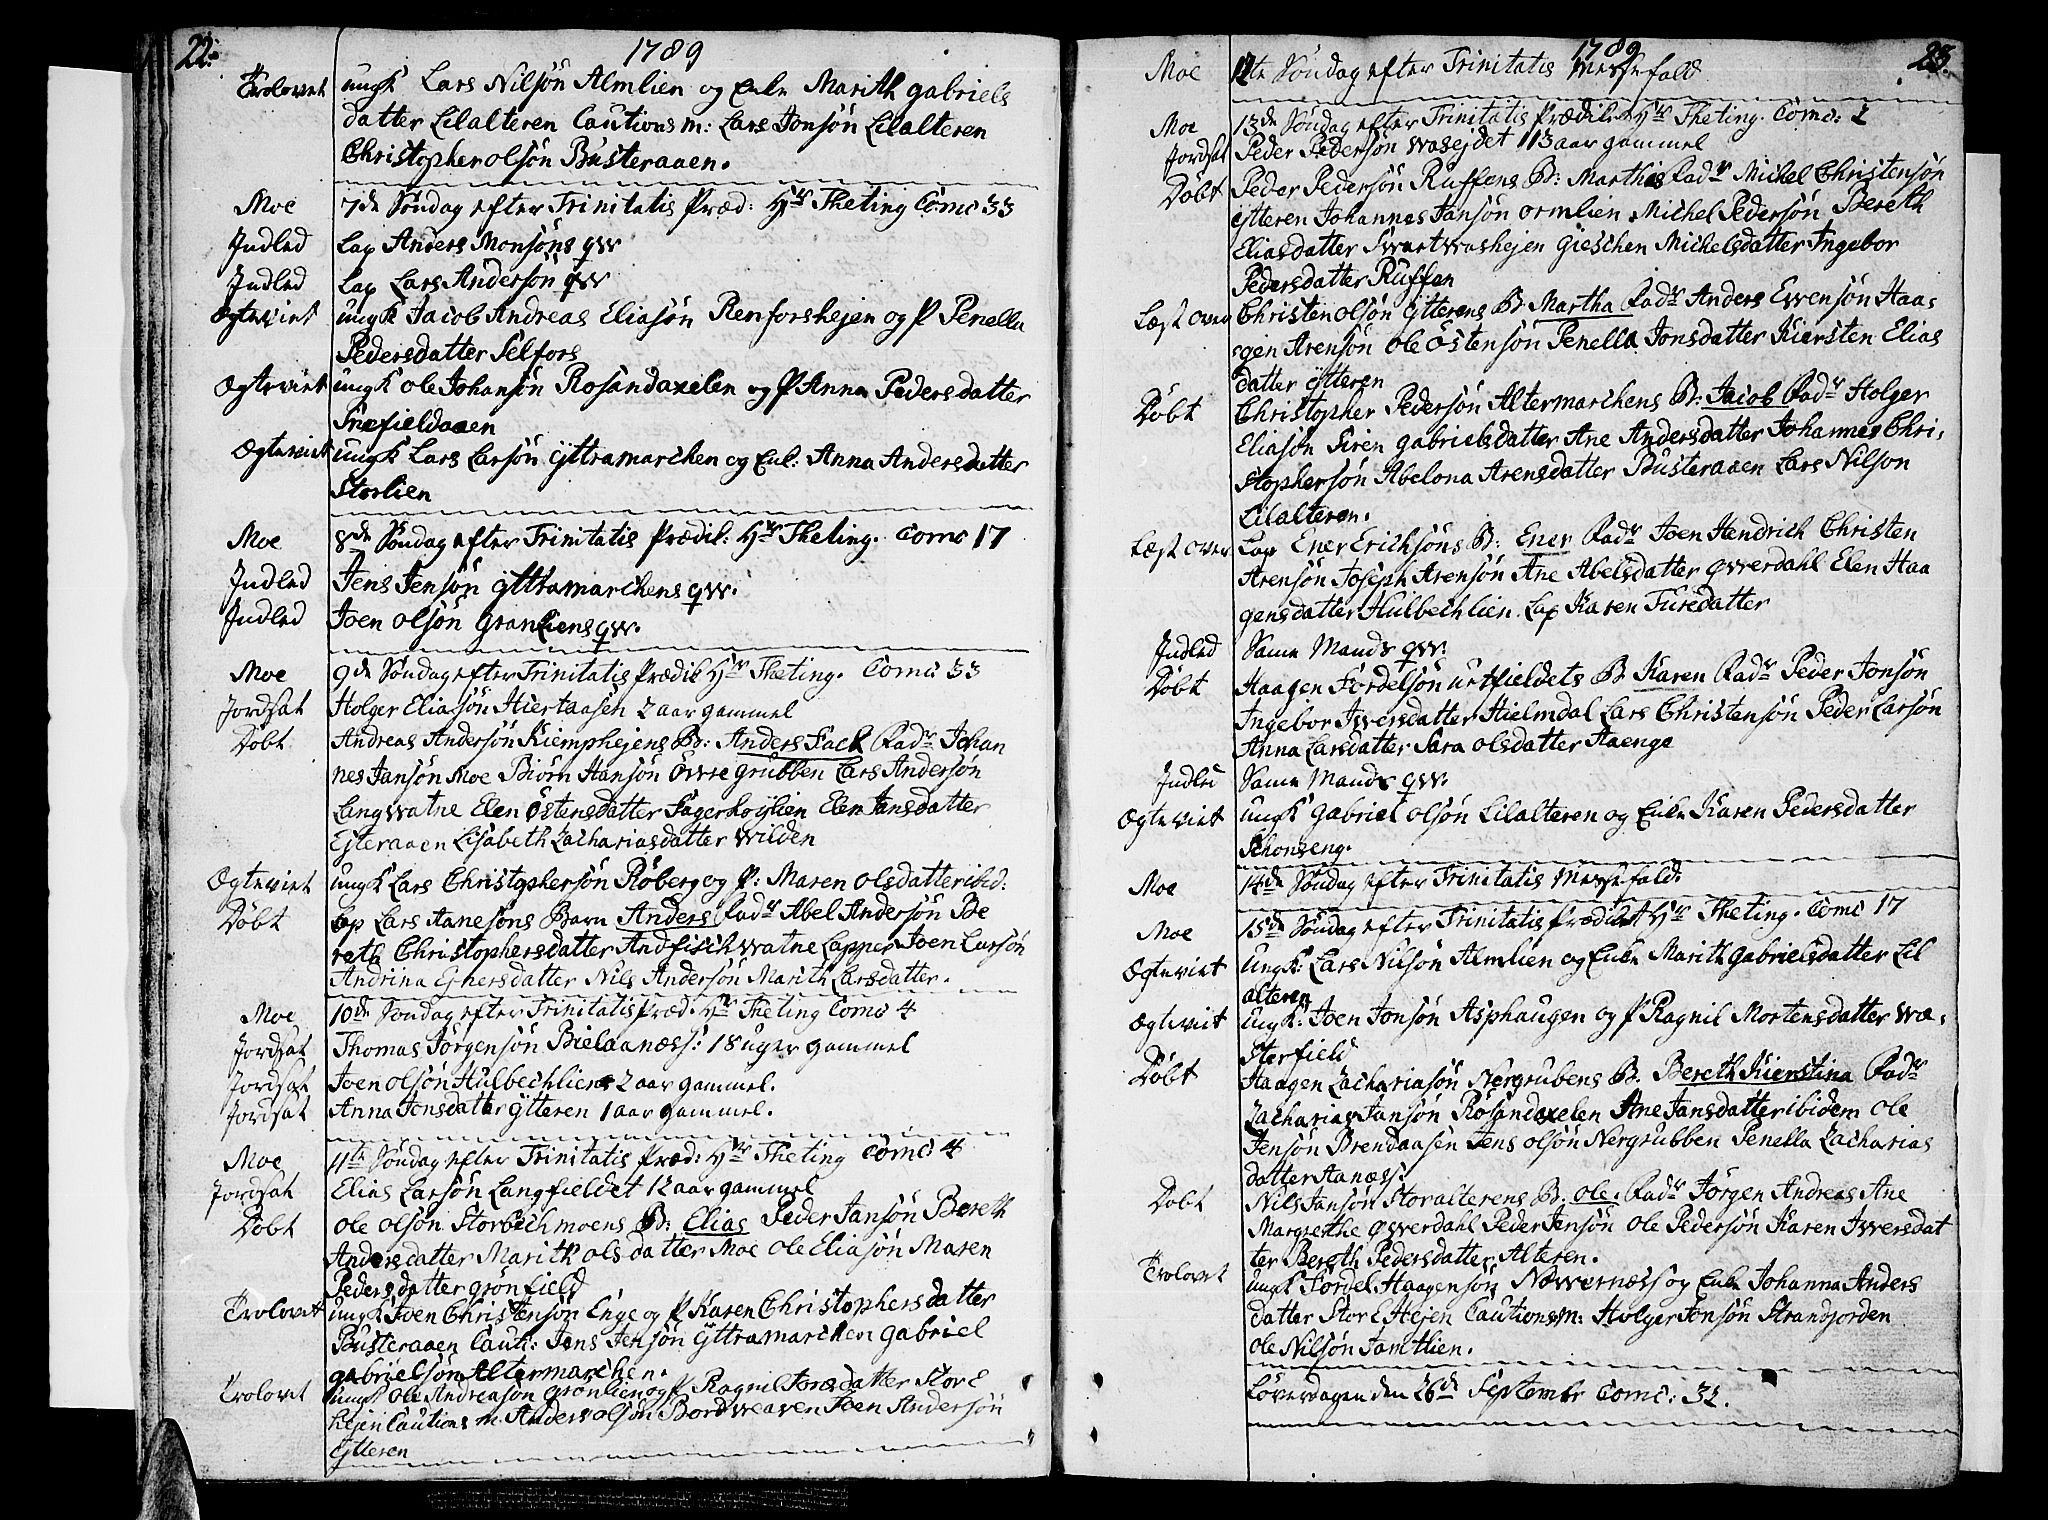 22.
1789
Trolovet ungk Lars Nilsön Almlien og Enke Marith gabriels
datter Lilalteren Cautions m: Lars Jonsön Lilalteren
Christopher olsön Busteraaen.
Moe 7de Söndag efter Trinitatis Præd: Hr Theting Comc 33
Indled Lap Anders Monsöns qv
Indled Lap Lars Andersön qv
Ægteviet ungk Jacob Andreas Eliasön Renforshejen og P Penella
Pedersdatter Selfors
Ægteviet ungk ole Johansen Rosandaxelen og P Anna Pedersdatter
Snefieldaaen
Ægteviet ungk Lars Larsön Ÿttramarchen og Enk: Anna Andersdatter
Storlien
Moe 8de Söndag efter Trinitatis Prædik: Hr Theting. Comc 17
Indled Jens Jensön Ÿttramarchens qv.
Indled Joen olsön Granliens qv.
Moe 9de Söndag efter Trinitatis Prædik Hr Theting. Comc 33
Jordsat Holger Eliasön Hiertaasen 2 aar gammel
Döbt Andreas Andersön Kiemphejens B: Anders Fack Fadr Johan
nes Jansön Moe Biörn Hansön övre grubben Lars Andersön
Langvatne Elen östensdatter Fagerhoÿlien Elen Jansdatter
Ejteraaen Lisabeth Zachariasdatter Wilden
Ægteviet ungk Lars Christophersön Röberg og P: Maren olsdatter ibid:
Döbt Lap Lars Aanesöns Barn Anders Fadr Abel Andersön Be
reth Christophersdatter Andfischvatne Lapper Joen Larsön
Andrina Ejnersdatter Nils Andersön Marith Larsdatter.
Moe 10de Söndag efter Trinitatis Præd. Hr Theting Comc 4
Jordsat Thomas Jörgensön Bielaanæss: 18 uger gammel
Jordsat Joen olsön Hulbechlien 2 aar gammel.
Jordsat Anna Jonsdatter Ÿtteren 1 aar gammel.
Moe 11te Söndag efter Trinitatis Præd: Hr Theting Comc 4
Jordsat Elias Larsön Langfieldet 12 aar gammel
Döbt ole olsön Storbechmoens B: Elias Peder Jansön Bereth
Andersdatter Marith olsdatter Moe ole Eliasön Maren
Pedersdatter grönfield
Trolovet ungk Joen Christensön Enge og P Karen Christophersdatter
Busteraaen Cauti: Jens Jensön Ÿttramarchen gabriel
gabrielsön Altermarchen.
Trolovet ungk ole Andreasön grönlien og P Ragnil Jonsdatter Stor E
hejen Cautions m. Anders olsön Bordveaven Joen Andersön
Ÿtteren
1789
23.
Moe 12te Söndag efter Trinitatis Messefald
Moe 13de Söndag efter Trinitatis Prædik Hr Theting. Comc: 2
Jordsat Peder Pedersön Vasejdet 113 aar gammel
Döbt Peder Pedersön Ruffens B: Marthes Fadr Michel Christensön
Ÿtteren Johannes Jansön ormlien Michel Pedersön Bereth
Eliasdatter Svartvashejen gieschen Michelsdatter Ingebor
Pedersdatter Ruffen
Læst over Christen olsön Ÿtterens B Martha Fadr Anders Evensön Haa
gen Arensön ole Östensön Penella Jonsdatter Kiersten Elias
datter Ÿtteren
Döbt Christopher Pedersön Altermarchens B: Jacob Fadr Holger
Eliasön Siren gabrielsdatter Ane Andersdatter Johannes Chri,
stophersön Abelona Arensdatter Busteraaen Lars Nilson
Lilalteren.
Læst over Lap Ener Erichsöns B: Ener Fadr Joen Hendrich Christen
Arensön Joseph Arensön Ane Abelsdatter øverdahl Elen Haa
gensdatter Hulbechlien. Lap Karen Turedatter
Indled Same Mands qv.
Döbt Haagen Fordelsön urtfieldets B Karen Fadr Peder Jonsön
Ingebor Iversdatter Hielmdal Lars Christensön Peder Larsön
Anna Larsdatter Sara olsdatter Aaenge
Indled Same Mands qv.
Ægteviet ungk gabriel olsön Lilalteren og Enke Karen Pedersdatter
Schonseng.
Moe 14de Söndag efter Trinitatis Messefald:
Moe 15de Söndag efter Trinitatis Prædiket Hr Theting. Comc 17
Ægteviet Ungk: Lars Nilsön Almlien og Enke Marith gabrielsdatter Lil
alteren
Ægteviet Ungk: Joen Jonsön Asphaugen og P Ragnil Mortensdatter Wæ,
sterfield
Döbt Haagen Zachariasön Nergrubens B. Bereth Kierstina Fadr
Zacharias Jansön Rösandaxelen Ane Jansdatter ibidem ole
Jensön Brendaasen Jens olsön Nergrubben Penella Zacharias
datter Aanæss:
Döbt Nils Jansön Storalterens B. ole. Fadr Jörgen Andreas Ane
Margrethe øverdahl Peder Jensön ole Pedersön Karen Iversdat
ter Bereth Pedersdatter Alteren.
Trolovet ungk Fordel Haagensön Nævernæss og Enke Johanna Anders
datter Stor E Hejen Cautionsm: Holger Jonsön Strandjorden
ole Nilsön Jamtlien.
Löverdagen den 26de Septembr Comc: 32.